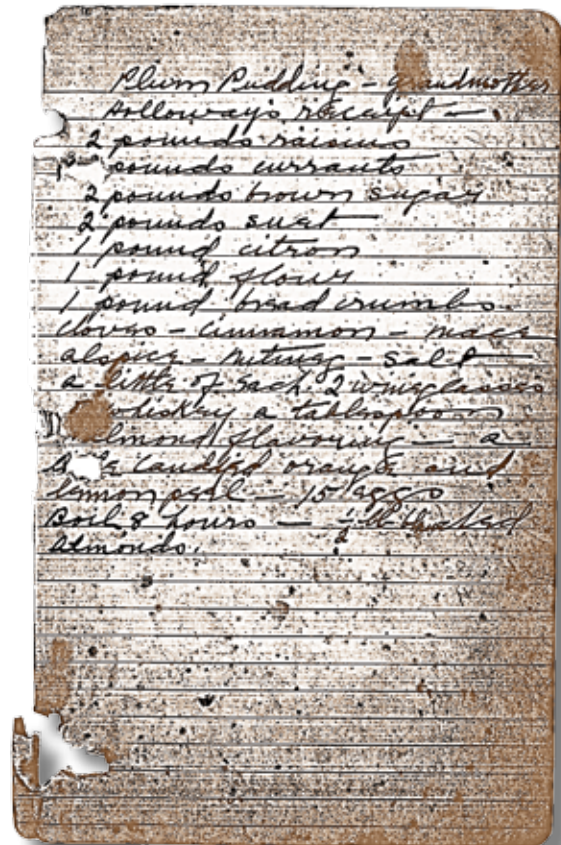 Plum Pudding - Grandmother
Holloway's receipt -
2 pounds raisins
pounds currants
2 pounds brown sugar
2 pounds suet
1 pound citron
1 pound flour
1 pound bread crumbs
cloves - cinnamon - mace
alspice - nutmeg - salt -
a little of each. 2 wineglasses
whiskey a tablespoon
almond flavoring - a
candied orange and
lemon peel - 15 eggs
Boil 8 hours - ½ lb
almonds.